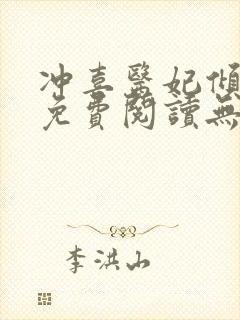 冲喜醫妃傾
免費閱讀無
李洪山